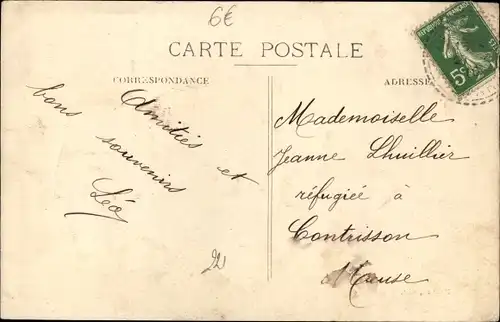 6€
CARTE POSTALE
CORRESPONDANCE
ADRESSE
Amitiés et
bons souvenirs
Léo
Mademoiselle
Jeanne Lhuillier
réfugiée à
Contrisson
Meuse
5c